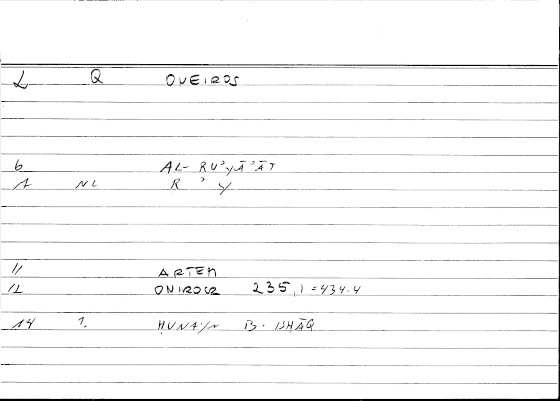 L Q ONEIROS
6 AL-RUʾYĀʾĀT
1 NL R ʾ Y
11 ARTEM
12 ONIROCR 235,1 = 434.4
14 1. ḤUNAYN B. ISḤĀQ